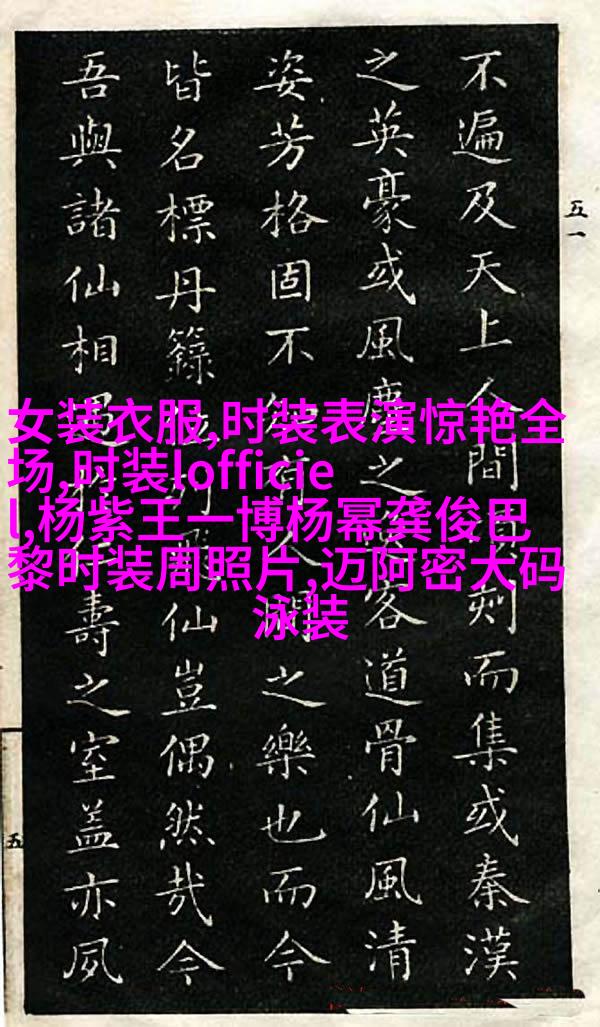 女装衣服,时装表演惊艳全
场,时装lofficie
l,杨紫王一博杨幂龚俊巴
黎时装周照片,迈阿密大码
泳装
五一
不遍及天上人間刻而集或秦漢
之英豪或風塵之客道骨仙風清
姿芳格固不有人間之樂也而今
皆名標丹籙仙豈偶然哉今
吾與諸仙相遇壽之室蓋亦夙
五